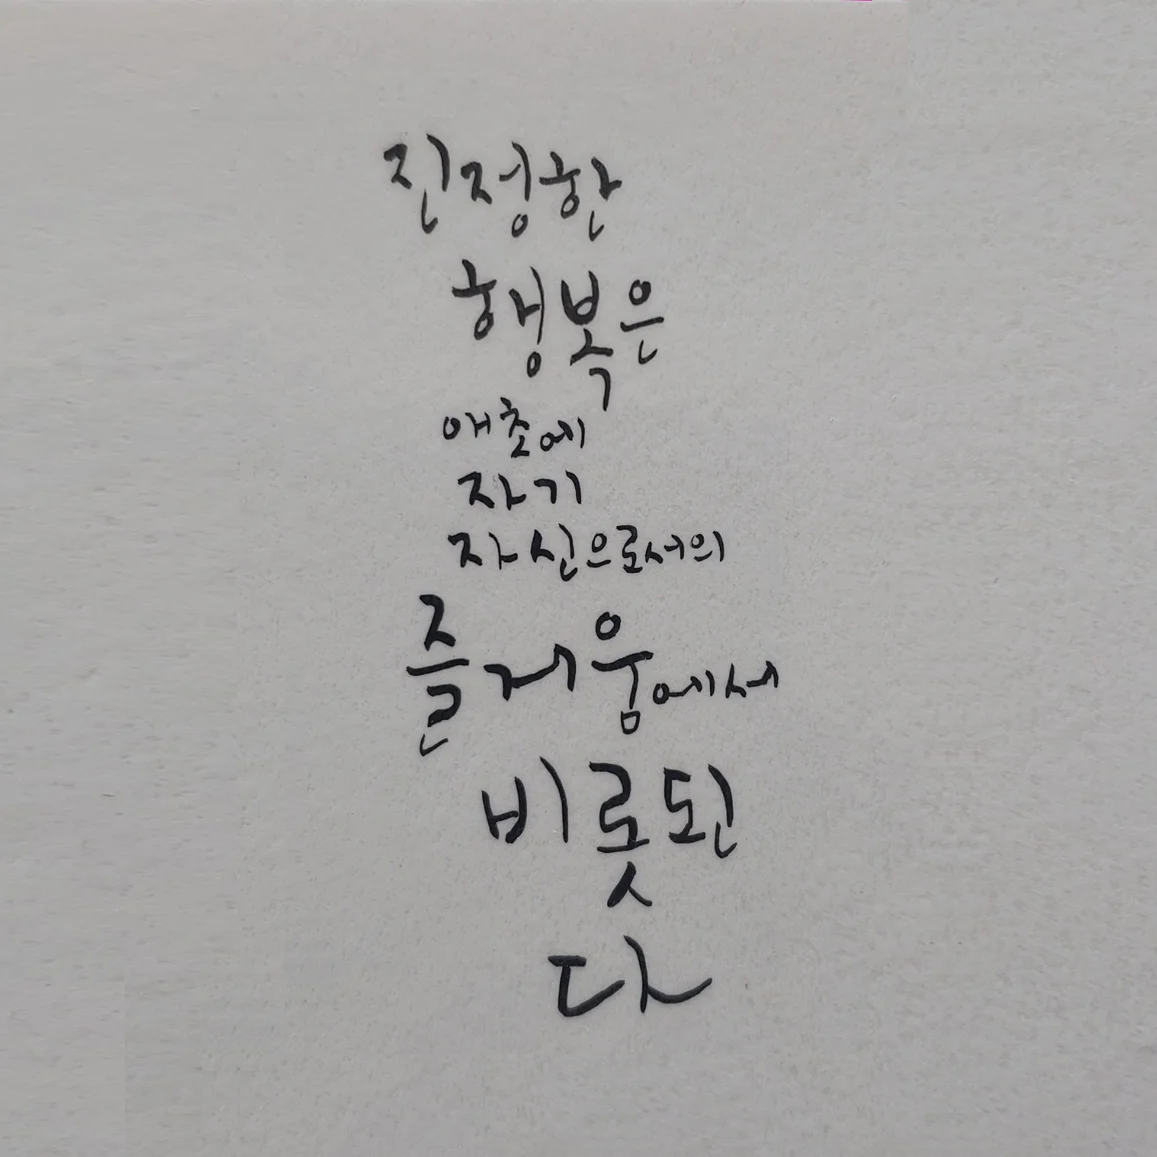 진정한
행복은
애초에
자기
자신으로서의
즐거움에서
비롯된
다